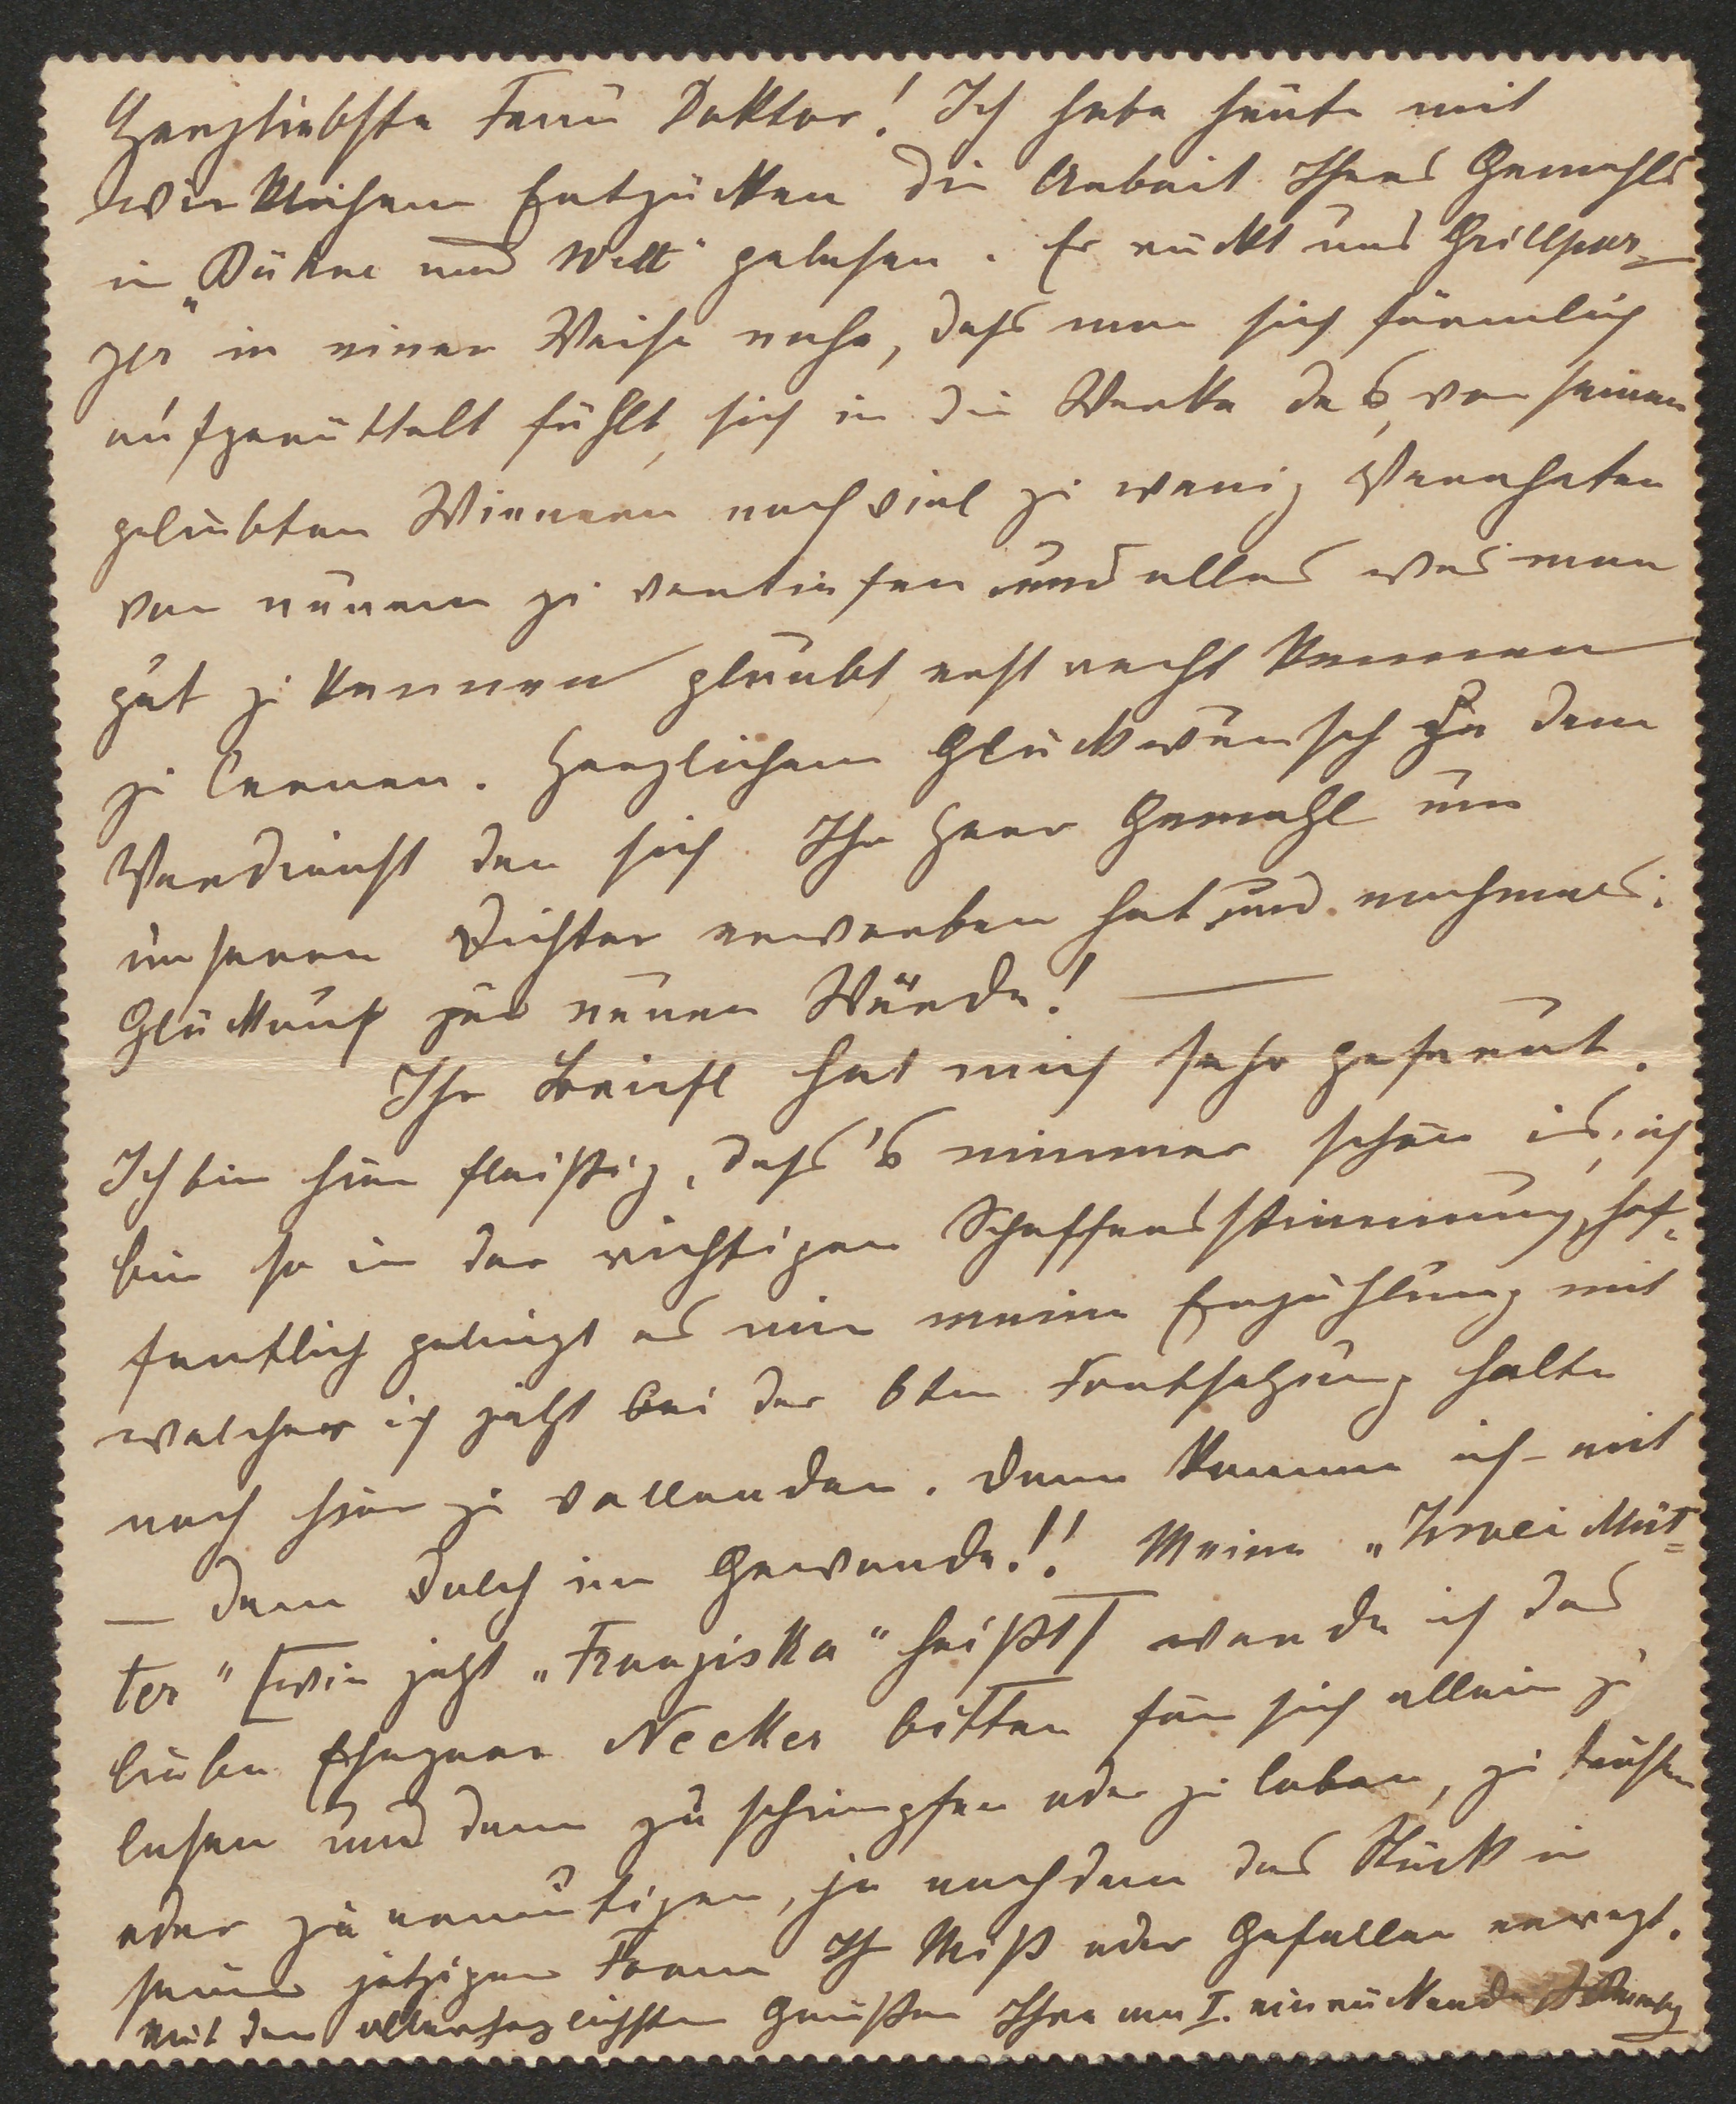 Herzliebste Frau Doktor! Ich habe heute mit
wirklichem Entzücken die Arbeit Ihres Gemahls
in „Bühne und Welt" gelesen. Er rückt uns Grillpar-
zer in einer Weise nahe, dass man sich förmlich
aufgerüttelt fühlt, sich in die Werke des, von seinen
geliebten Wienern noch viel zu wenig Verehrten
von neuem zu vertiefen und alles was man
gut zu kennen glaubt, erst recht kennen
zu lernen. Herzlichem Glückwunsch zu dem
Verdienst den sich Ihr Herr Gemahl um
unseren Dichter erworben hat und nochmals:
Glückauf zur neuen Würde! —
Ihr Briefl hat mich sehr gefreut.
Ich bin hier fleißig, dass's nimmer schön is, ich
bin so in der richtigen Schaffensstimmung, hof-
fentlich gelingt es mir meine Erzählung mit
welcher ich jetzt bei der 6ten Fortsetzung halte
noch hier zu vollenden. Dann komme ich - mit
— dem Dolch im Gewande!! Meine „Zwei Müt=
ter" [wie jetzt „Franziska" heißt] werde ich das
liebe Ehepaar Necker bitten für sich allein zu
lesen und dann zu schimpfen oder zu loben, zu trösten
oder zu ermutigen, je nachdem das Stück in
seiner jetzigen Form Ihr Miß oder Gefallen erregt.
Mit den allerherzlichsten Grüßen Ihre am I. einrückende